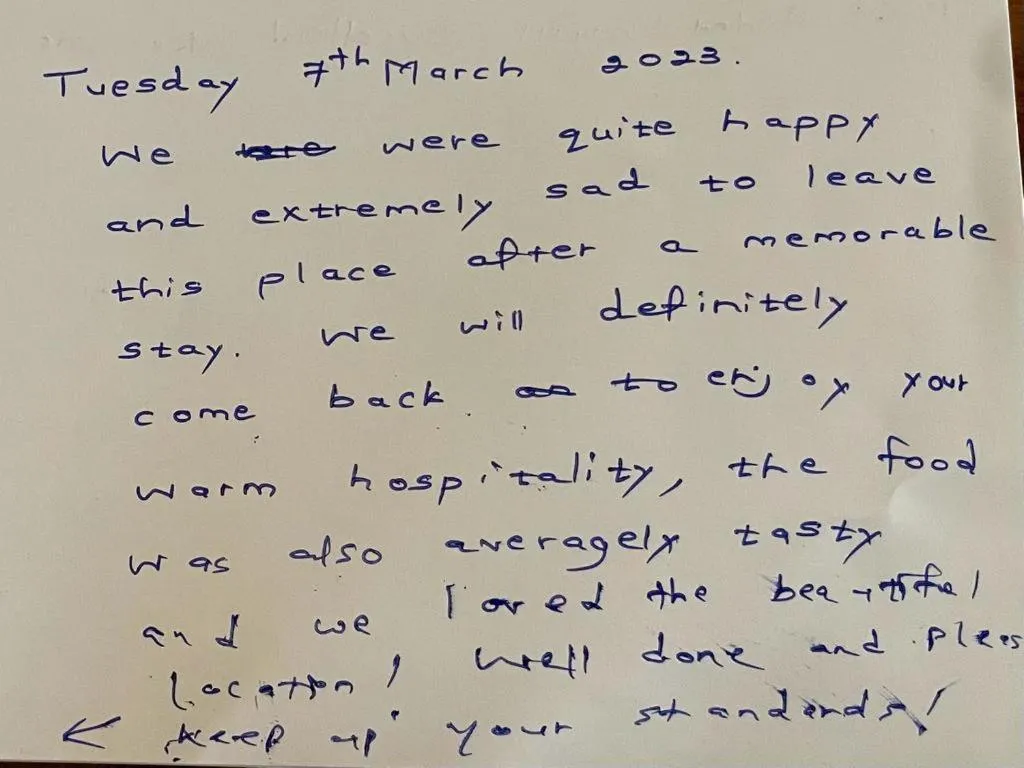 Tuesday 7th March 2023.
We were quite happy
and extremely sad to leave
this place after a memorable
stay. We will definitely
come back to enjoy your
warm hospitality, the food
was also averagely tasty
and we loved the beautiful
location! Well done and pleas
keep up your standards!